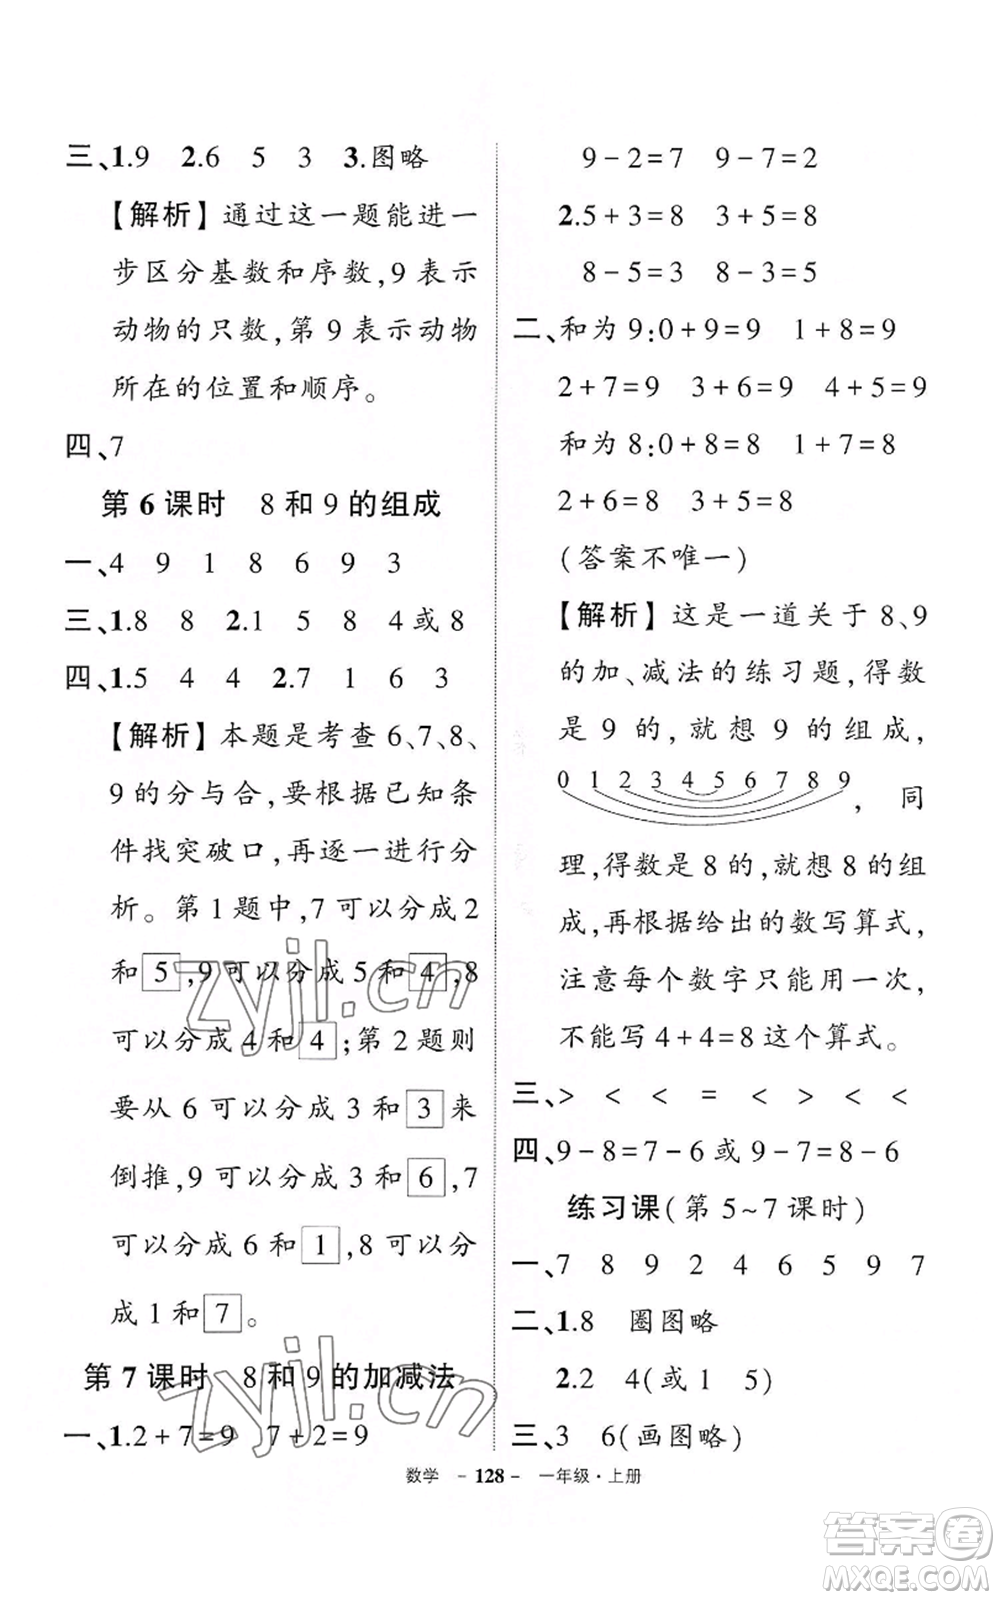 三、1.9 2.6 5 3 3.图略
【解析】通过这一题能进一
步区分基数和序数,9 表示
动物的只数,第 9 表示动物
所在的位置和顺序。
四、7
第 6 课时 8 和 9 的组成
一、4 9 1 8 6 9 3
三、1.8 8 2.1 5 8 4 或 8
四、1.5 4 4 2.7 1 6 3
【解析】本题是考查 6、7、8、
9 的分与合,要根据已知条
件找突破口,再逐一进行分
析。第 1 题中,7 可以分成 2
和 5 ,9 可以分成 5 和 4 ,8
可以分成 4 和 4 ;第 2 题则
要从 6 可以分成 3 和 3 来
倒推,9 可以分成 3 和 6 ,7
可以分成 6 和 1 ,8 可以分
成 1 和 7 。
第 7 课时 8 和 9 的加减法
一、1.2+7=9 7+2=9
9-2=7 9-7=2
2.5+3=8 3+5=8
8-5=3 8-3=5
二、和为 9:0+9=9 1+8=9
2+7=9 3+6=9 4+5=9
和为 8:0+8=8 1+7=8
2+6=8 3+5=8
(答案不唯一)
【解析】这是一道关于 8、9
的加、减法的练习题,得数
是 9 的,就想 9 的组成,
0 1 2 3 4 5 6 7 8 9 , 同
理,得数是 8 的,就想 8 的组
成,再根据给出的数写算式,
注意每个数字只能用一次,
不能写 4+4=8 这个算式。
三、> < < = < > < <
四、9-8=7-6 或 9-7=8-6
练习课(第 5~7 课时)
一、7 8 9 2 4 6 5 9 7
二、1.8 圈图略
2.2 4(或 1 5)
三、3 6(画图略)
数学 - 128 - 一年级·上册
zyjl.cn
zyjl.cn
答案圈
MXQE.COM